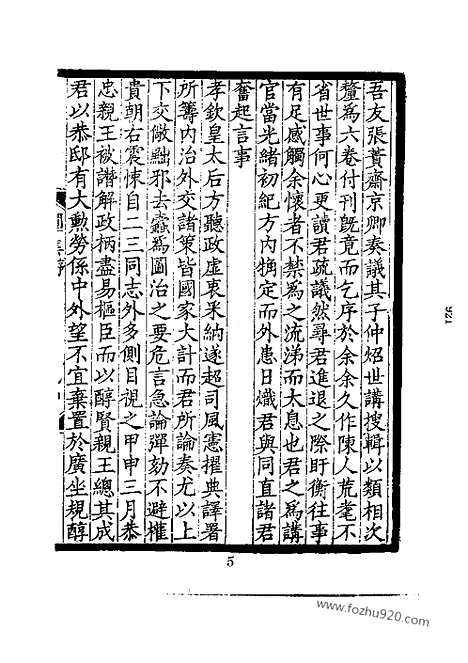 吾友張蕢齋京卿奏議其子仲炤世講搜輯以類相次
釐為六卷付刊旣竟而乞序於余余久作陳人荒耄不
省世事何心更讀君疏議然尋君進退之際盱衡往事
有足感觸余懷者不禁為之流涕而太息也君之為講
官當光緒初紀方內觕定而外患日熾君與同直諸君
奮起言事
孝欽皇太后方聽政虛衷采納遂超司風憲擢典譯署
所籌內治外交諸策皆國家大計而君所論奏尤以上
下交儆黜邪去蠹為圖治之要危言急論彈劾不避權
貴朝右震悚自二三同志外多側目視之甲申三月恭
忠親王被譖解政柄盡易樞臣而以醇賢親王總其成
君以恭邸有大勳勞係中外望不宜棄置於廣坐規醇
5
921
www.fozhu920.com